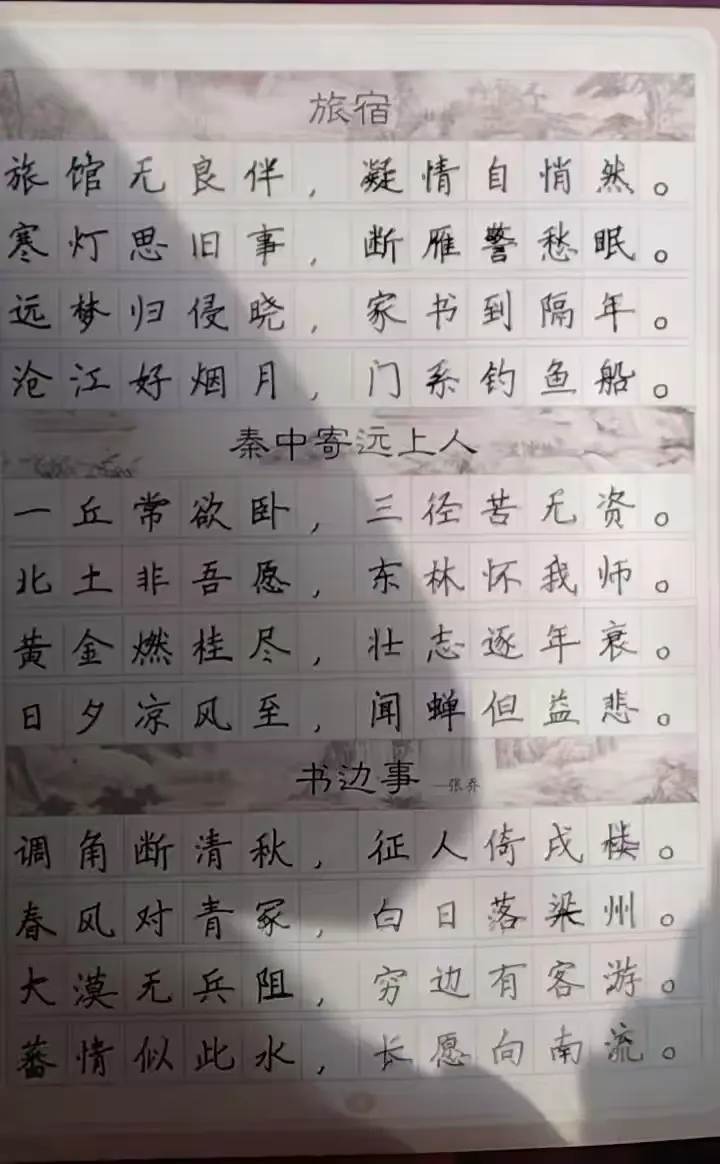 旅宿
旅馆无良伴，凝情自悄然。
寒灯思旧事，断雁警愁眠。
远梦归侵晓，家书到隔年。
沧江好烟月，门系钓鱼船。
秦中寄远上人
一丘常欲卧，三径苦无资。
北土非吾愿，东林怀我师。
黄金燃桂尽，壮志逐年衰。
日夕凉风至，闻蝉但益悲。
书边事 —张乔
调角断清秋，征人倚戍楼。
春风对青冢，白日落梁州。
大漠无兵阻，穷边有客游。
蕃情似此水，长愿向南流。